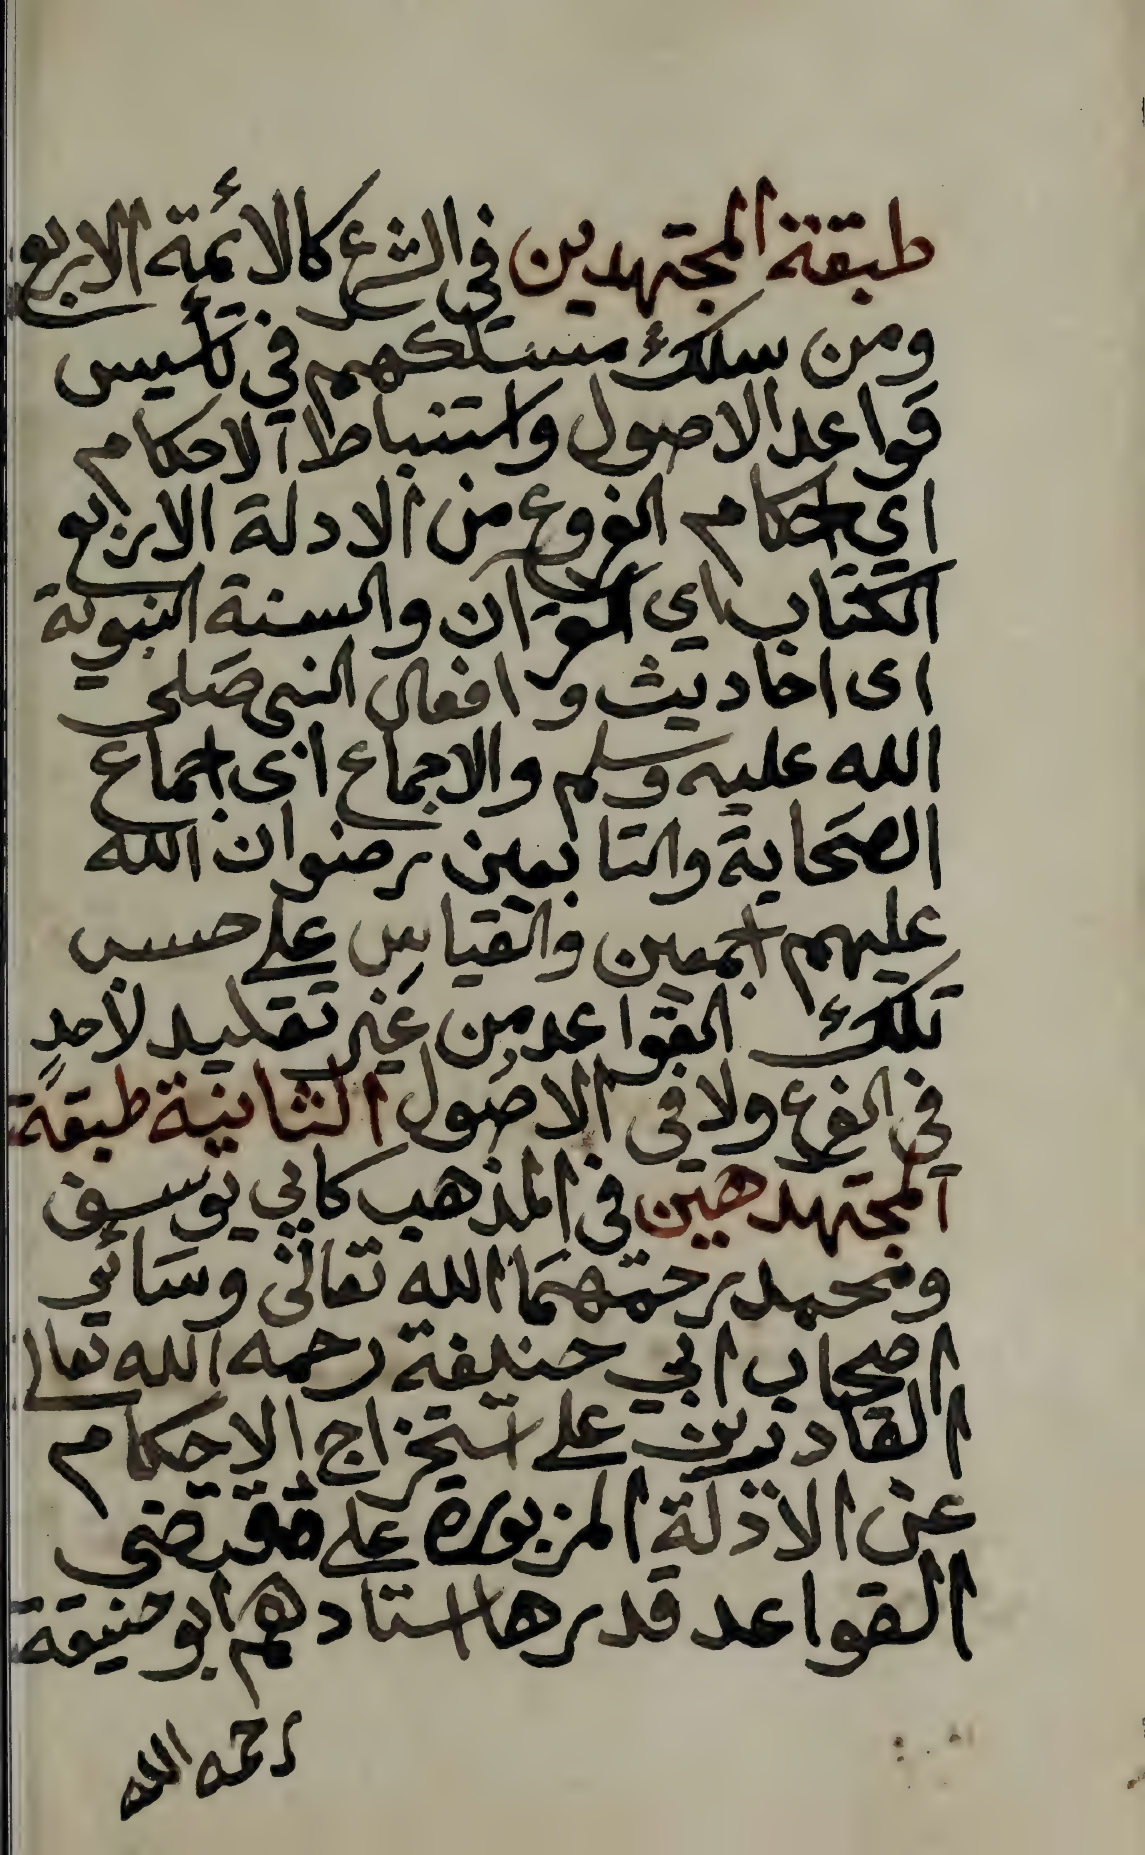 طبقة المجتهدين في الشرع كالأئمة الاربع
ومن سلك مسلكهم في تأسيس
قواعد الاصول واستنباط الاحكام
اي احكام الفروع من الادلة الاربع
الكتاب اي القرآن والسنة النبوية
اى احاديث وافعال النبى صلى
الله عليه وسلم والاجماع اى اجماع
الصحابة والتابعين رضوان الله
عليهم اجمعين والقياس على حسب
تلك القواعد من غير تقليد لأحد
في الفرع ولا فى الاصول الثانية طبقة
المجتهدهين فى المذهب كابي يوسف
ومحمد رحمتهما الله تعالى وسائي
اصحاب ابي حنيفة رحمه الله تعالى
القادرين على استخراج الاحكام
عن الادلة المزبورة على مقتضى
القواعد قدرها استادهم ابو حنيفة
رحمه الله